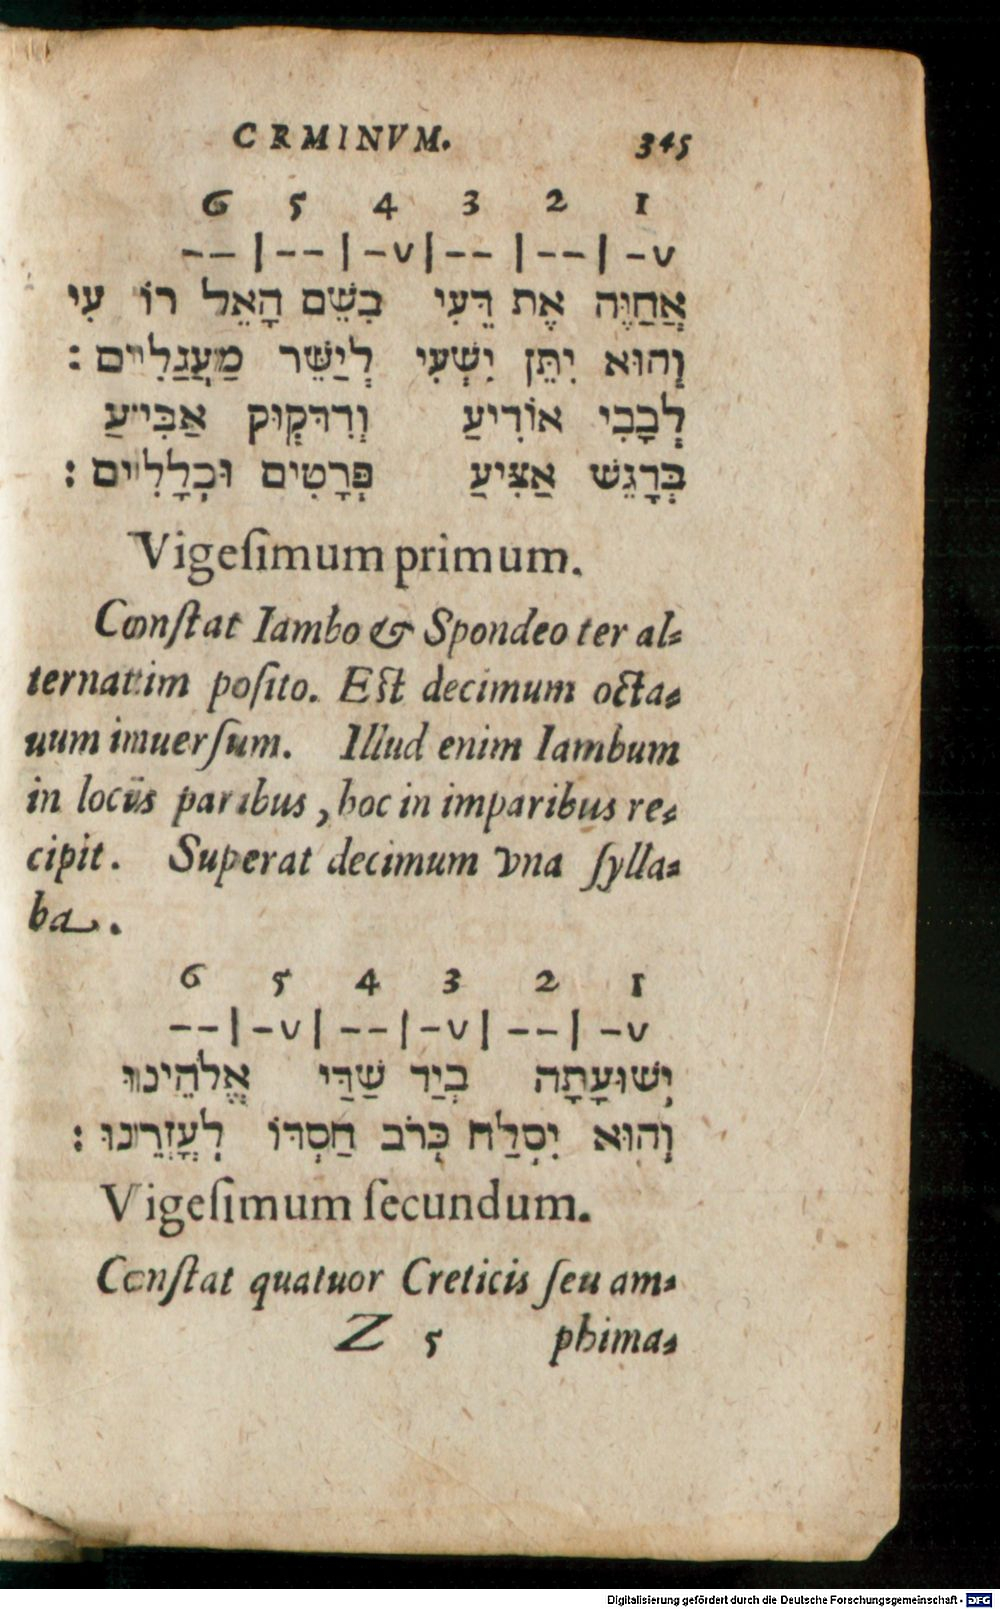 CRMINVM. 345
6 5 4 3 2 1
-- | -- | -v | -- | -- | -v
אֲחַוֶּה אֶת דֵּעִי בְּשֵׁם הָאֵל רוֹ עִי
וְהוּא יִתֵּן יִשְׁעִי לְיַשֵּׁר מַעֲגַלִיים :
לְבָבִי אוֹדִיעַ וְדִקְדּוּק אַבִּיעַ
בְּרָגֵשׁ אַצִּיעַ פְּרָטִים וּכְלָלִיים :
Vigeſimum primum.
Conſtat Iambo & Spondeo ter al⸗
ternatim poſito. Eſt decimum octa⸗
uum inuerſum. Illud enim Iambum
in locis paribus, hoc in imparibus re⸗
cipit. Superat decimum vna ſylla⸗
ba.
6 5 4 3 2 1
-- | -v | -- | -v | -- | -v
יְשׁוּעָתָה בְיַד שַׁדַּי אֱלֹהֵינוּ
וְהוּא יִסְלַח כְּרֹב חַסְדּוֹ לְעָזְרֵינוּ :
Vigeſimum ſecundum.
Conſtat quatuor Creticis ſeu am⸗
Z 5 phima⸗
Digitalisierung gefördert durch die Deutsche Forschungsgemeinschaft - DFG